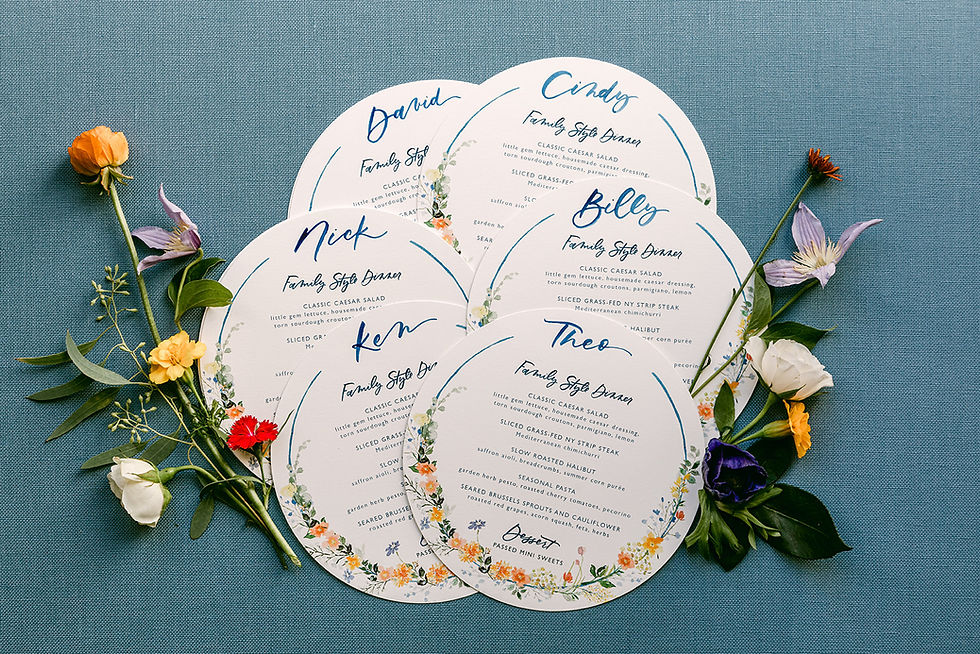 David
Family
CLASSIC
little gem lettuce,
torn sourdough
SLICED
saffron aioli
Cindy
Family Style Dinner
CLASSIC CAESAR SALAD
little gem lettuce, housemade caesar dressing,
torn sourdough croutons, parmigiano,
SLICED GRASS-FED
garden
SEARED
Nick
Family Style Dinner
CLASSIC CAESAR SALAD
little gem lettuce, housemade caesar dressing,
torn sourdough croutons, parmigiano,
SLICED
Billy
Family Style Dinner
CLASSIC CAESAR SALAD
little gem lettuce, housemade caesar dressing,
torn sourdough croutons, parmigiano, lemon
SLICED GRASS-FED NY STRIP STEAK
Mediterranean chimichurri
HALIBUT
summer corn purée
PASTA
tomatoes, pecorino
CAULIFLOWER
feta, herbs
Ken
Family Style
CLASSIC
little gem lettuce,
torn sourdough
SLICED
saffron aioli,
garden herb pesto,
SEARED BRUSSELS
roasted red
PASSED
Theo
Family Style Dinner
CLASSIC CAESAR SALAD
little gem lettuce, housemade caesar dressing,
torn sourdough croutons, parmigiano, lemon
SLICED GRASS-FED NY STRIP STEAK
Mediterranean chimichurri
SLOW ROASTED HALIBUT
saffron aioli, breadcrumbs, summer corn purée
SEASONAL PASTA
garden herb pesto, roasted cherry tomatoes, pecorino
SEARED BRUSSELS SPROUTS AND CAULIFLOWER
roasted red grapes, acorn squash, feta, herbs
Dessert
PASSED MINI SWEETS